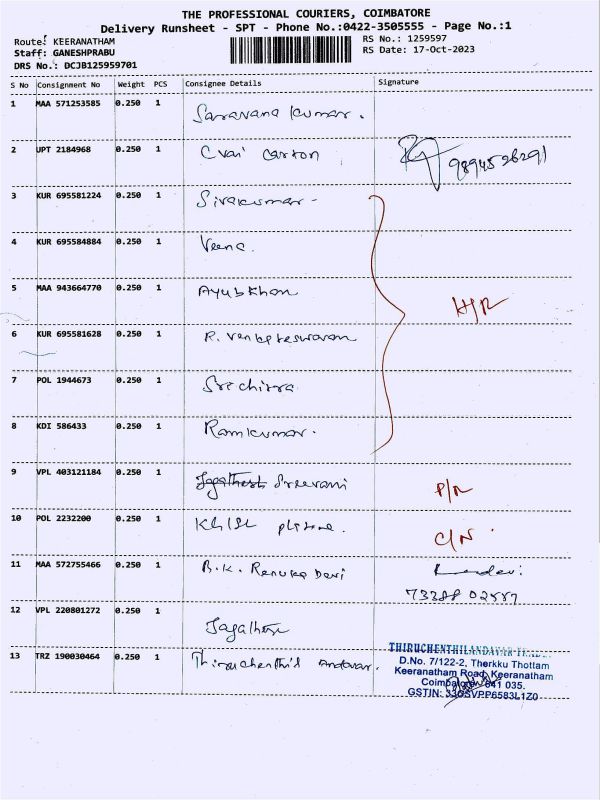 THE PROFESSIONAL COURIERS, COIMBATORE
Delivery Runsheet - SPT - Phone No.:0422-3505555 - Page No.:1
Route: KEERANATHAM
RS No.: 1259597
Staff: GANESHPRABU
RS Date: 17-Oct-2023
DRS No.: DCJB125959701
S No Consignment No Weight PCS Consignee Details Signature
1 MAA 571253585 0.250 1 Saravana Kumar.
2 UPT 2184968 0.250 1 Cvai Carton 9894526291
3 KUR 695581224 0.250 1 Sivakumar-
4 KUR 695584884 0.250 1 Veena.
5 MAA 943664770 0.250 1 Ayubkhan H/R
6 KUR 695581628 0.250 1 R. Venkateswaran
7 POL 1944673 0.250 1 Srichitra
8 KDI 586433 0.250 1 Ramkumar.
9 VPL 403121184 0.250 1 Sreevani P/R
10 POL 2232200 0.250 1 C/N
11 MAA 572755466 0.250 1 B.K. Renuka Devi
12 VPL 220801272 0.250 1
13 TRZ 190030464 0.250 1 Thiruchenthil Andavar.
D.No. 7/122-2, Therkku Thottam
Keeranatham Road, Keeranatham
Coimbatore - 641 035.
GSTIN: 33GSVPP6583L1Z0